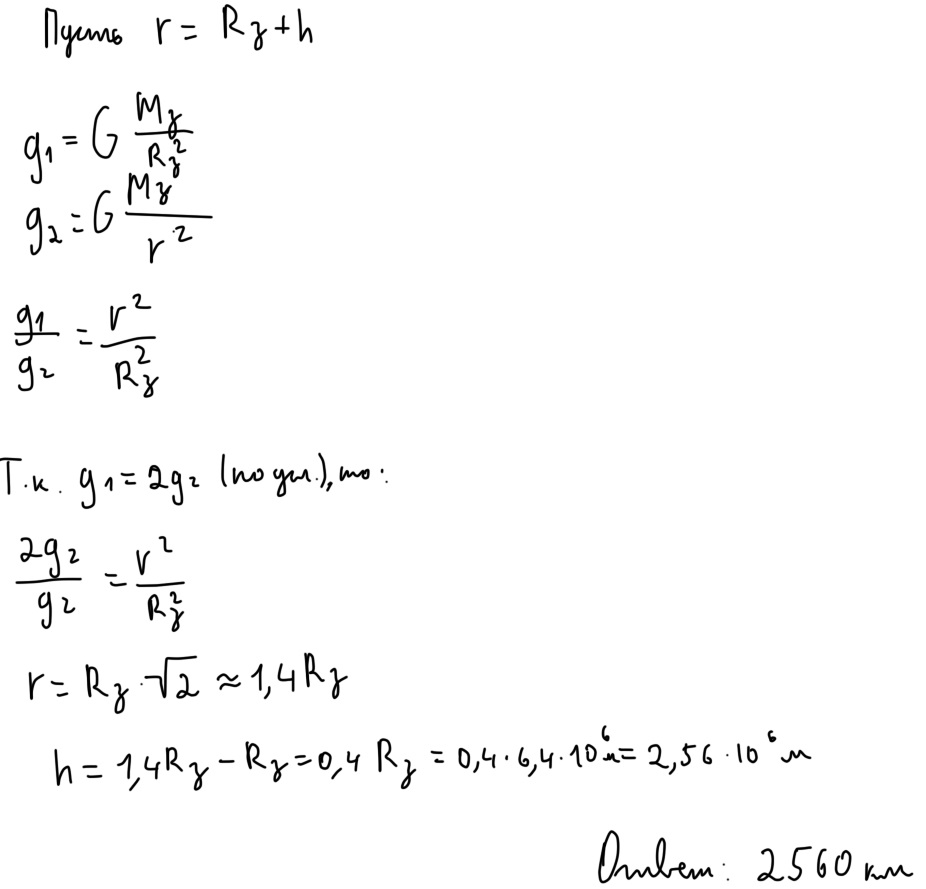 Пусть r = Rз + h
g₁ = G Mз / Rз²
g₂ = G Mз / r²
g₁ / g₂ = r² / Rз²
Т.к. g₁ = 2g₂ (по усл.), то:
2g₂ / g₂ = r² / Rз²
r = Rз · √2 ≈ 1,4 Rз
h = 1,4Rз − Rз = 0,4 Rз = 0,4 · 6,4 · 10⁶ м = 2,56 · 10⁶ м
Ответ: 2560 км